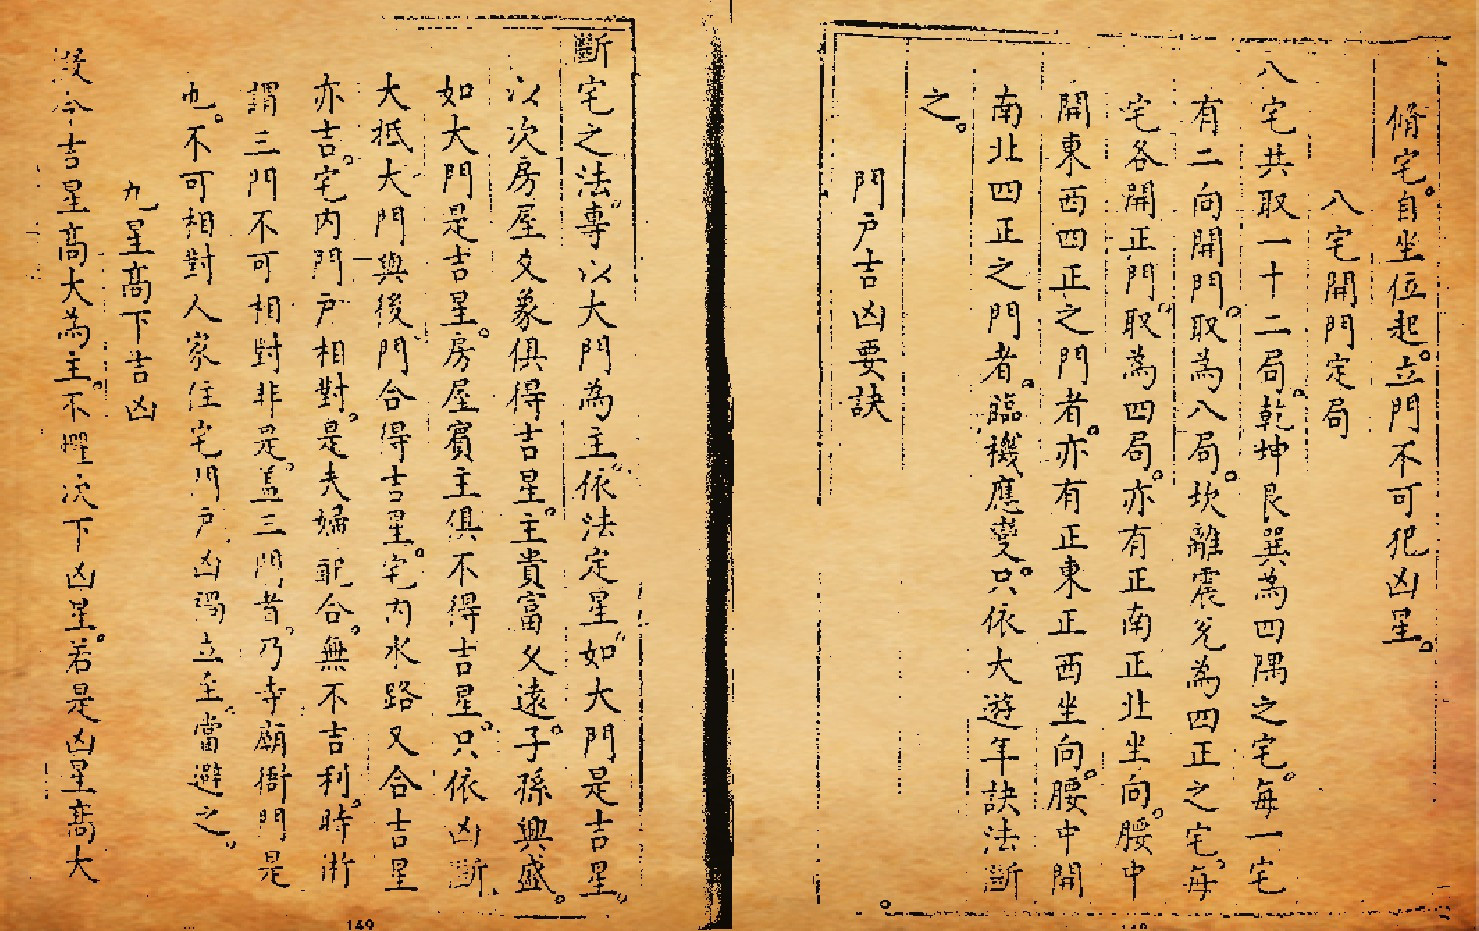 脩宅。自坐位起。立門不可犯凶星。
八宅開門定局
八宅共取一十二局。乾坤艮巽為四隅之宅。每一宅
有二向開門。取為八局。坎離震兌為四正之宅。每
宅各開正門。取為四局。亦有正南正北坐向。腰中
開東西四正之門者。亦有正東正西坐向。腰中開
南北四正之門者。臨機應變。只依大遊年訣法斷
之。
門戶吉凶要訣
斷宅之法。專以大門為主。依法定星。如大門是吉星。
以次房屋爻象俱得吉星。主貴富久遠。子孫興盛。
如大門是吉星。房屋賓主俱不得吉星。只依凶斷。
大抵大門與後門合得吉星。宅內水路又合吉星
亦吉。宅內門戶相對。是夫婦配合。無不吉利。時術
謂三門不可相對非是。蓋三門者。乃寺廟衙門是
也。不可相對人家住宅門戶。凶禍立至。當避之。
九星高下吉凶
今吉星高大為主。不懼次下凶星。若是凶星高大
149